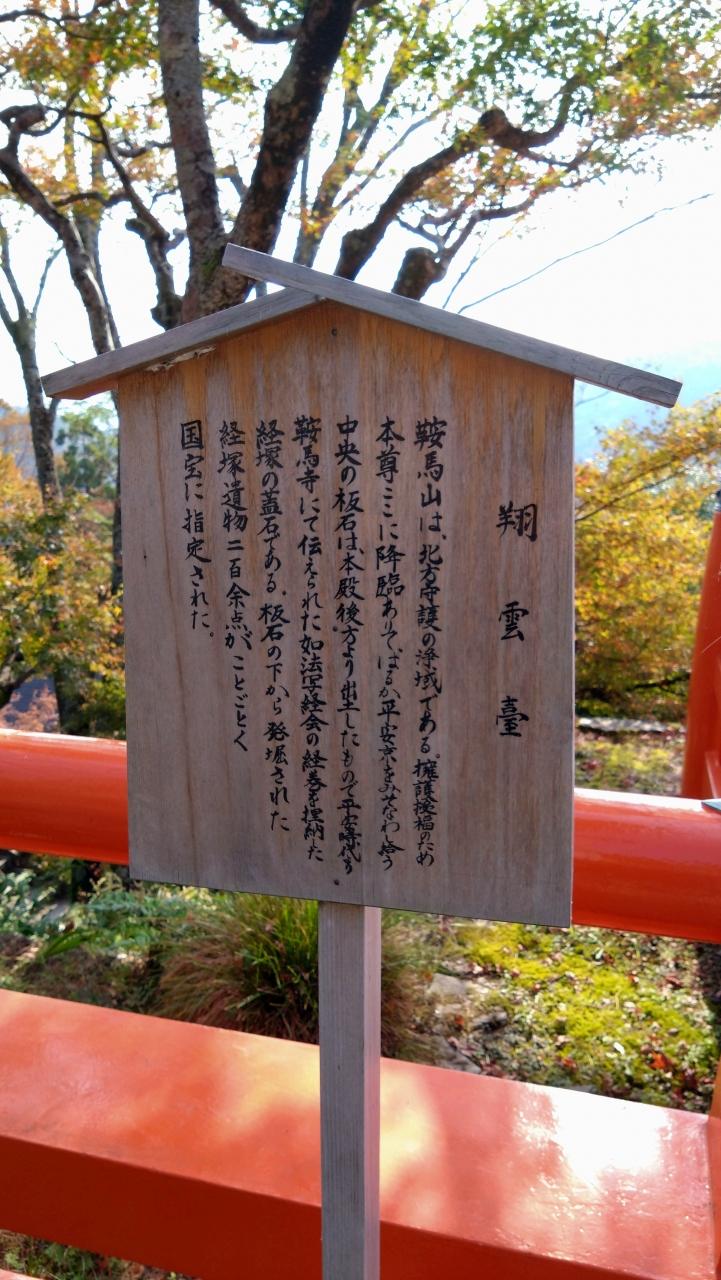 翔雲臺
鞍馬山は、北方守護の浄域である。擁護授福のため
本尊ここに降臨ありてはるか平安京をみそなわし給う
中央の板石は、本殿後方より出土したもので平安時代より
鞍馬寺にて伝えられた如法写経会の経巻を埋納した
経塚の蓋石である。板石の下から発掘された
経塚遺物二百余点がことごとく
国宝に指定された。